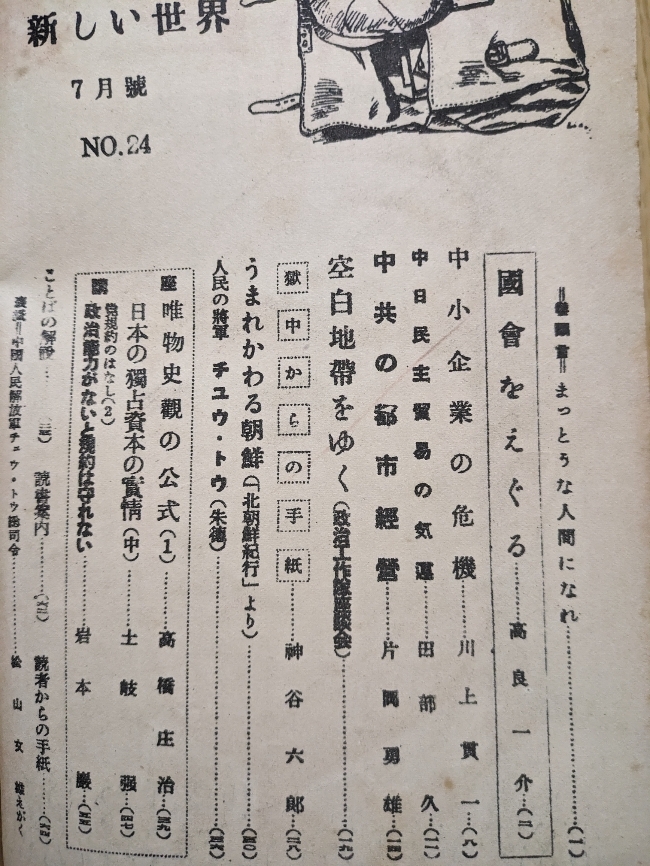 新しい世界
7月號
NO.24
＝巻頭言＝まっとうな人間になれ…………(一)
國會をえぐる………高良一介…(二)
中小企業の危機………川上貫一…(八)
中日民主貿易の気運………田部久…(一一)
中共の都市經營………片岡勇雄…(一四)
空白地帶をゆく(政治工作隊座談会)…………(一六)
獄中からの手紙………神谷六郎…(二八)
うまれかわる朝鮮(「北朝鮮紀行」より)…………(四〇)
人民の將軍 チュウ・トウ(朱德)…………
講座
唯物史觀の公式(1)………高橋庄治…
日本の獨占資本の實情(中)………土岐强…(四七)
党規約のはなし(2)
政治能力がないと規約は守れない………岩本巖…(五五)
ことばの解説…
読書案内………
読者からの手紙………
表紙＝中國人民解放軍チュウ・トウ総司令………松山文雄えがく